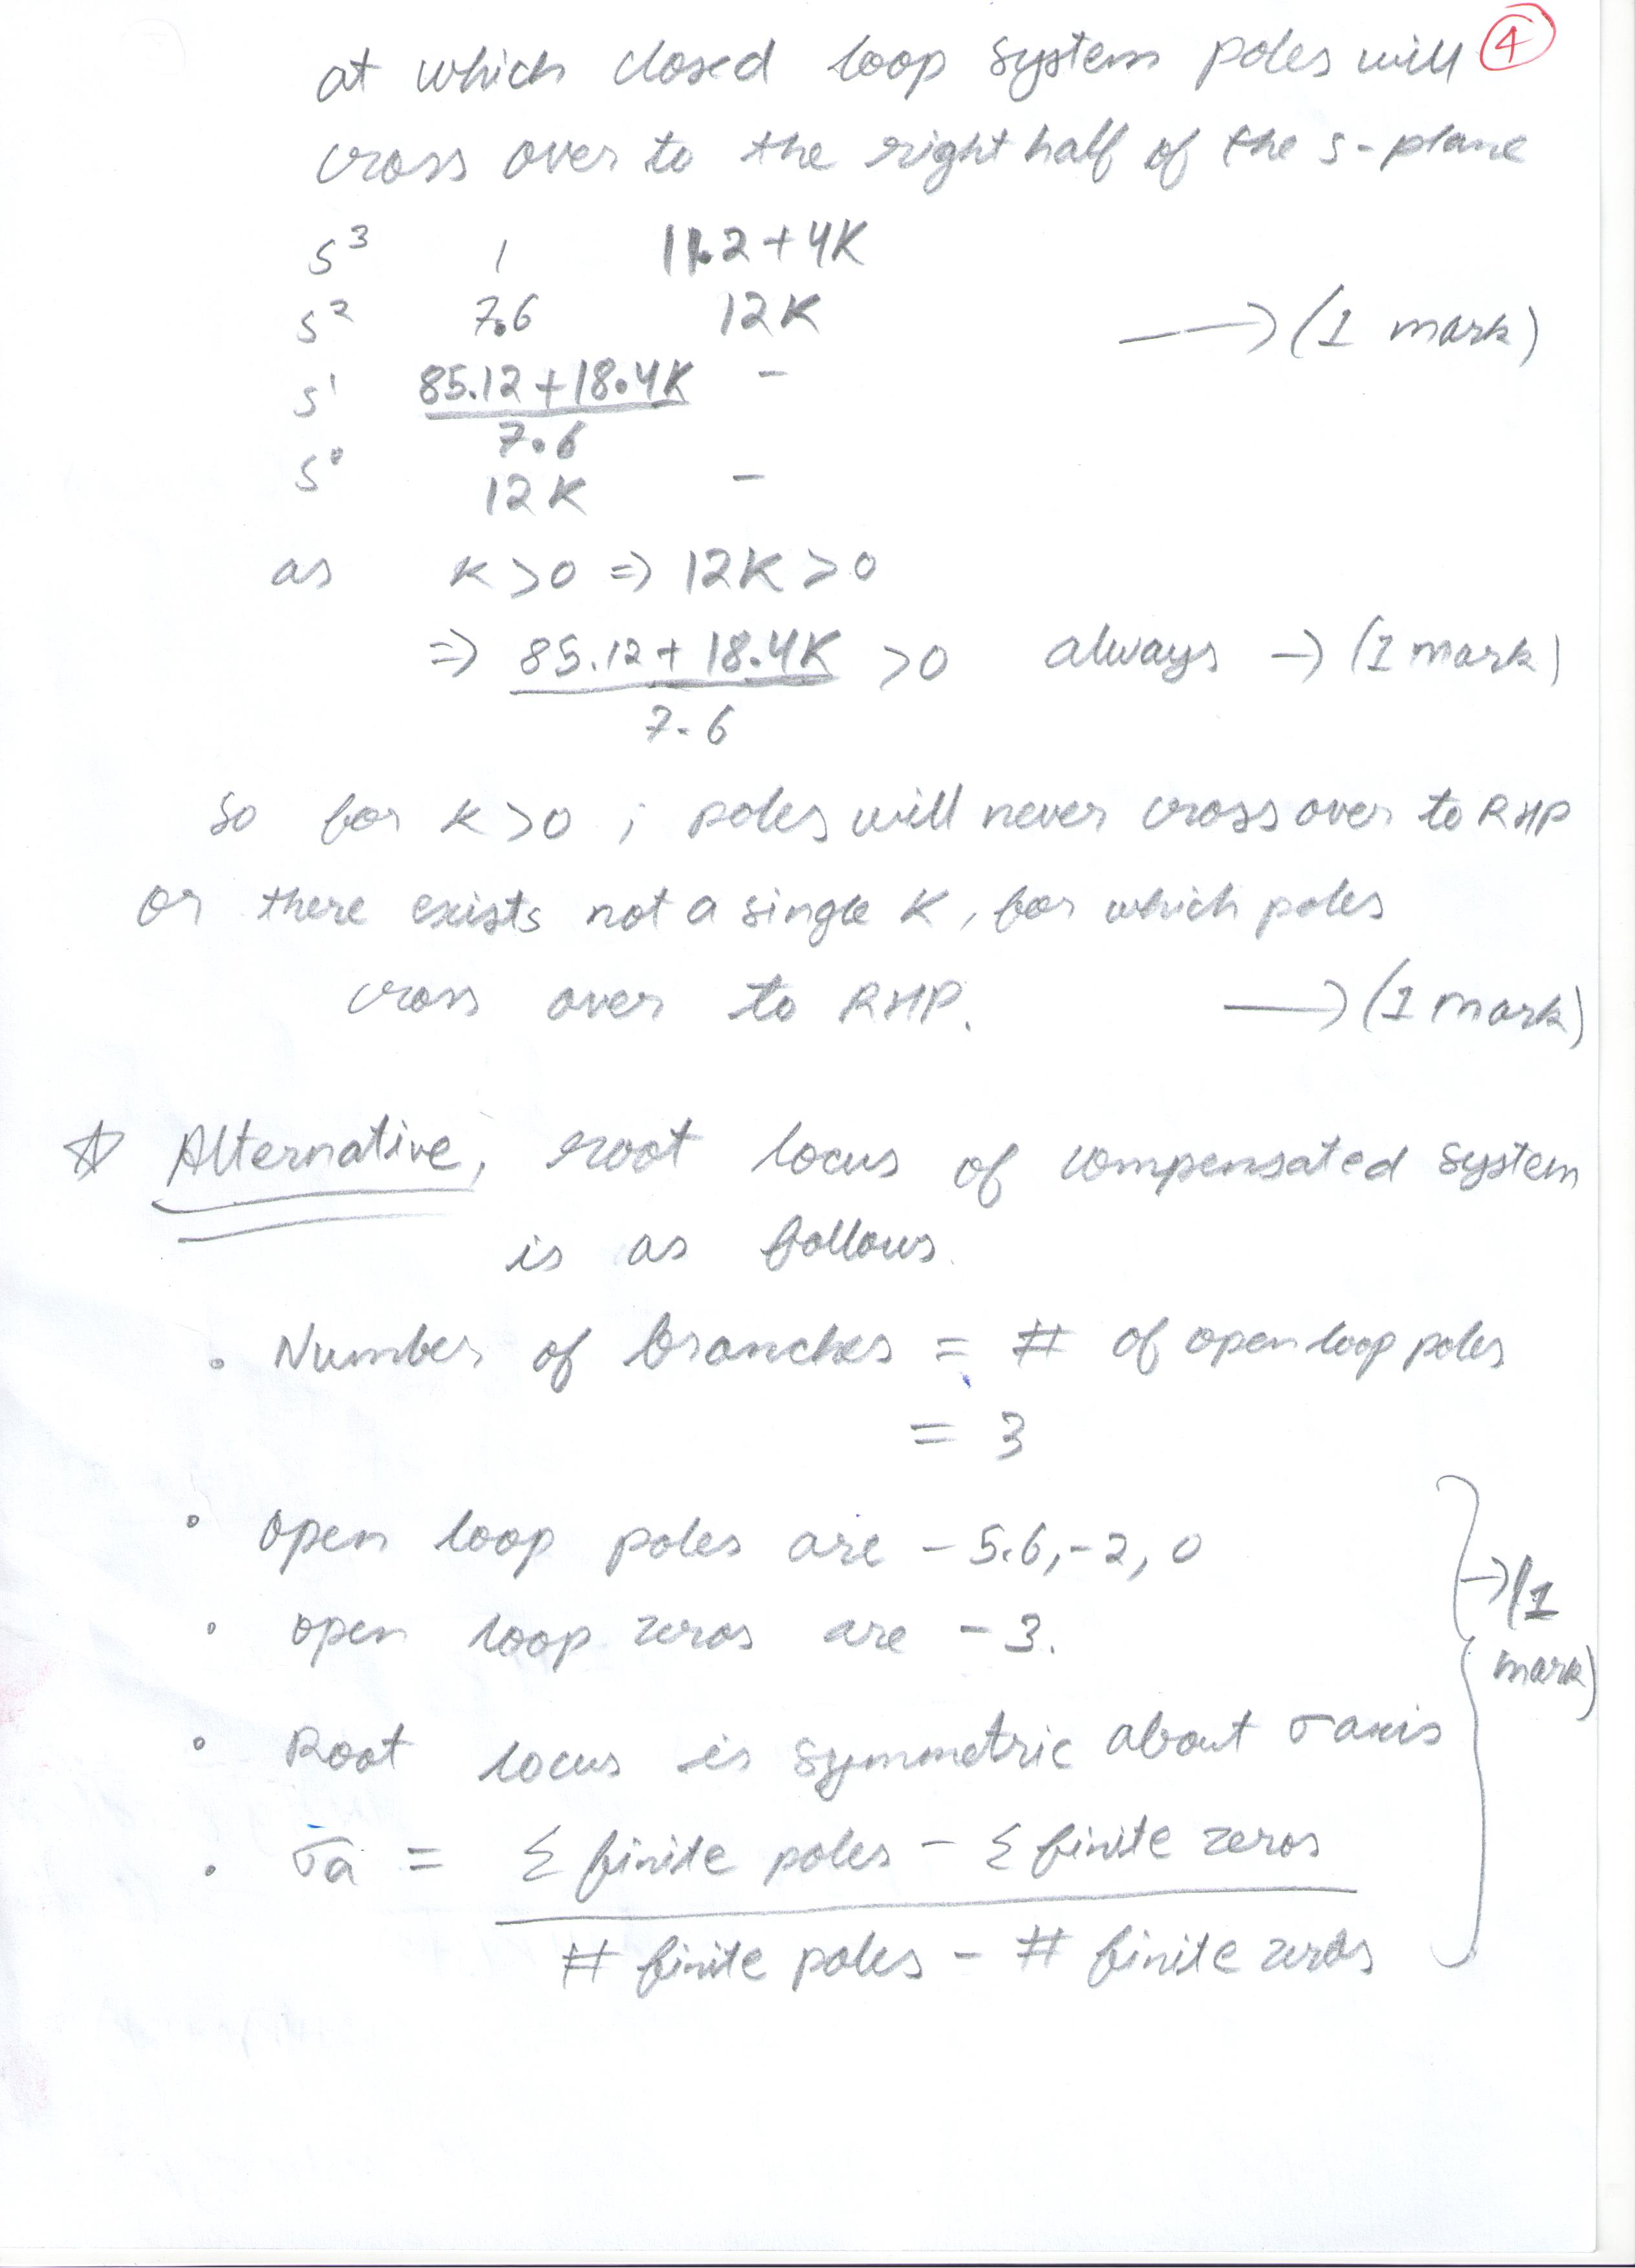 at which closed loop system poles will 4
cross over to the right half of the s-plane
s³ 1 11.2+4K
s² 7.6 12K → (1 mark)
s¹ 85.12+18.4K –
7.6
s⁰ 12K –
as K>0 ⇒ 12K>0
⇒ 85.12+18.4K >0 always → (1 mark)
7.6
so for K>0 ; poles will never cross over to RHP
or there exists not a single K, for which poles
cross over to RHP. → (1 mark)
☆ Alternative, root locus of compensated system
is as follows.
• Number of branches = # of open loop poles
= 3
• open loop poles are -5.6, -2, 0
• open loop zeros are -3.
→ (1 mark)
• Root locus is symmetric about σ axis
• σa = Σ finite poles - Σ finite zeros
# finite poles - # finite zeros